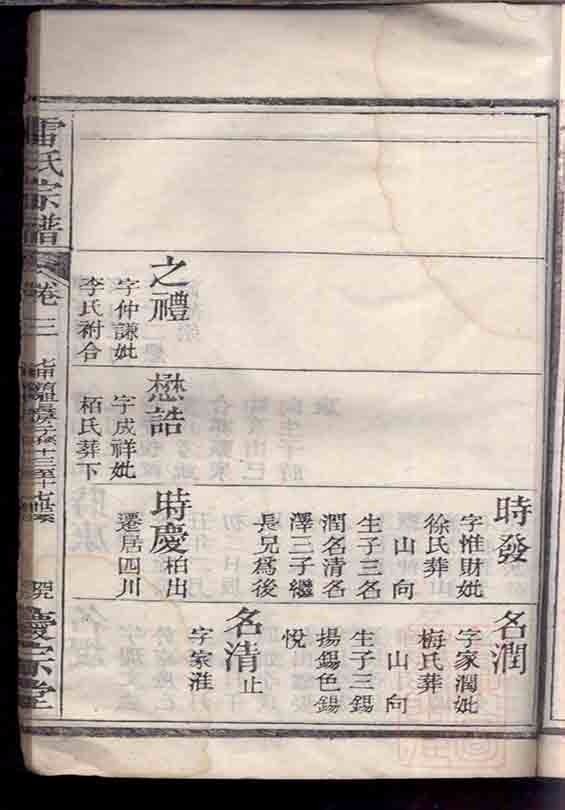 時發
字惟財妣
徐氏葬
山向
生子三名
潤名清名
澤三子繼
長兄爲後
名潤
字家潤妣
梅氏葬
山向
生子三錫
揚錫色錫
悅
名清止
字家淮
之禮
字仲謙妣
李氏祔合
懋誥
字成祥妣
栢氏葬下
時慶柏出
遷居四川
雷氏宗譜
卷三
慶宗堂